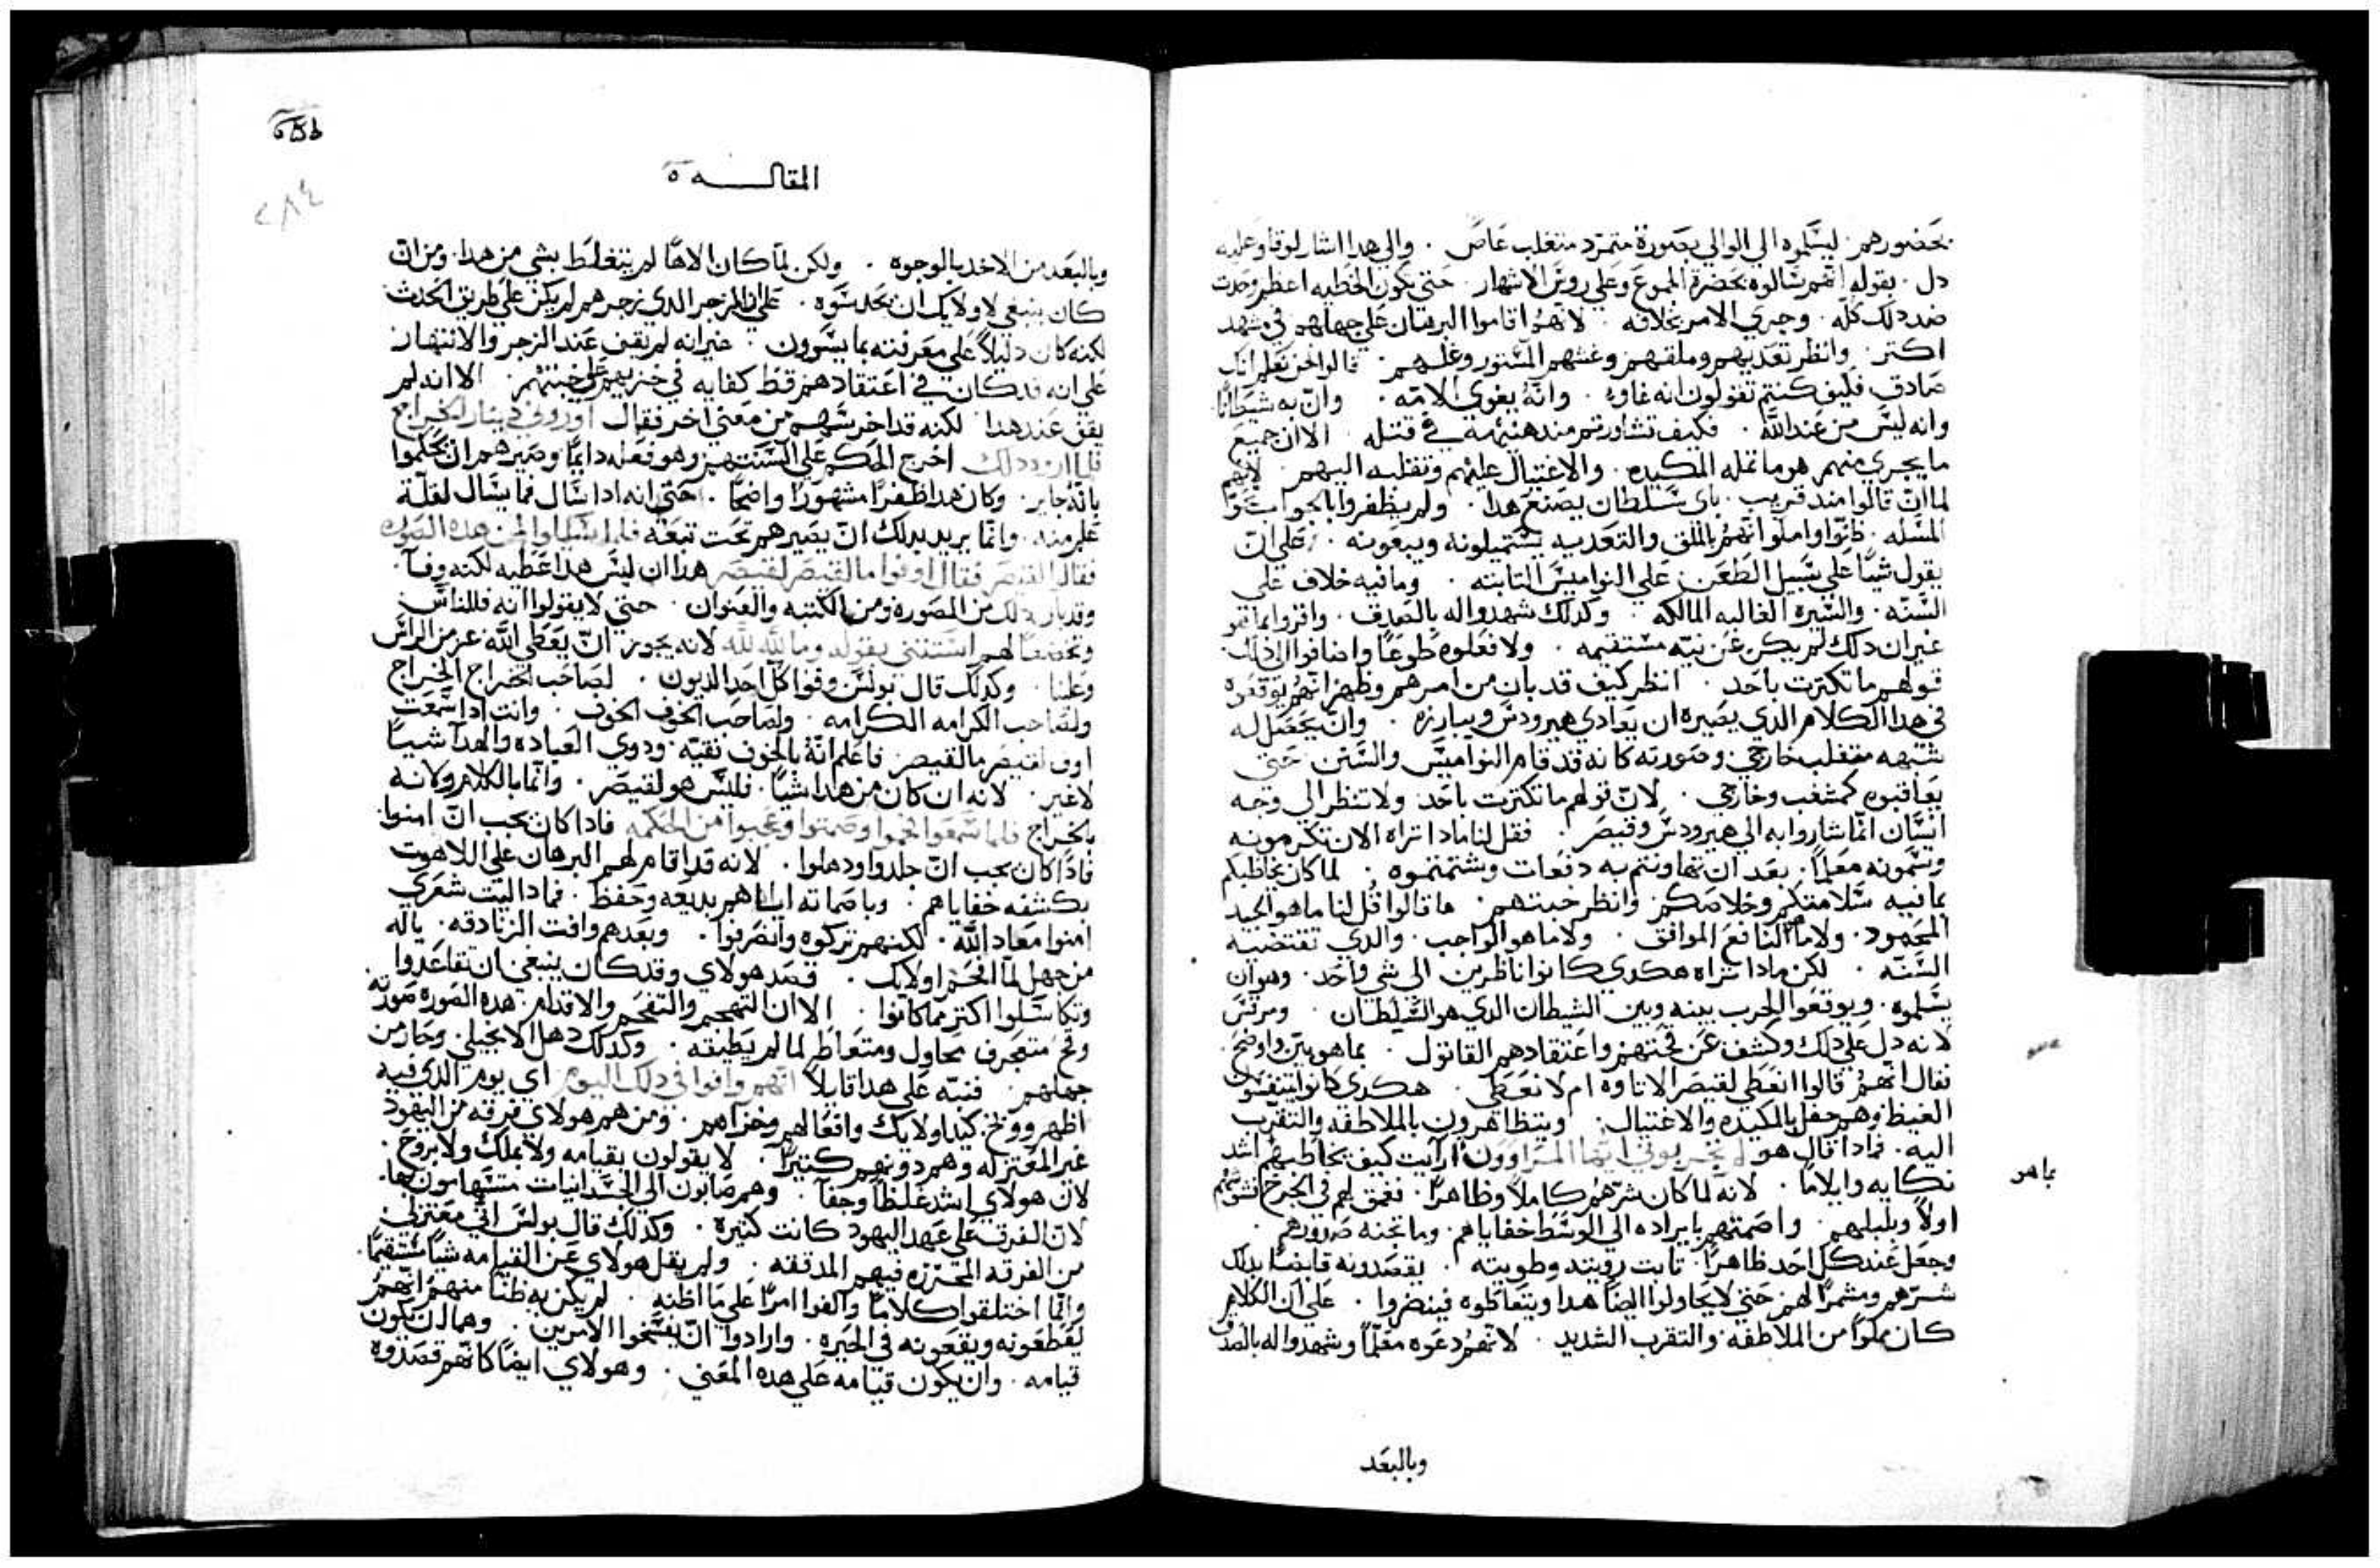 بحضورهم. ليسلموه الي الوالي بصورة متمرد متغلب عاص. والي هدا اشار لوقا وعليه
دل. بقوله انهم سالوه بحضرة الجموع وعلي روس الاشهار. حتي تكون الخطيه اعظم وحدت
ضد دلك كله. وجري الامر بخلافه. لانهم اقاموا البرهان علي جهلهم في مشهد
اكتر. وانظر تعديهم وملقهم وغشهم المستور وغلهم. قالوا نحن نعلم انك
صادق فكيف كنتم تقولون انه غاوٍ. وانه يغوي الامه. وان به شيطانا
وانه ليس من عند الله. فكيف تشاورتم مند هنيهة في قتله. الا ان جميع
ما يجري منهم هو ما تمله المكيده. والاغتيال عليهم وتغلبه اليهم. لانهم
لما ان قالوا مند قريب. باي سلطان يصنع هدا. ولم يظفروا بالجواب
المسله. ظنوا واملوا انهم بالملق والتعديه يستميلونه ويبعونه. علي ان
يقول شيا علي سبيل الطعن علي النواميس الثابته. وما فيه خلاف علي
السنه. والسيره الغالبه المالكه. وكدلك شهدوا له بالصدق. واقروا بما هو
غير ان دلك لم يكن عن نيه مستقيمه. ولا فعلوه طوعا واضافوا الي دلك
قولهم ما تكترت باحد. انظر كيف قد بان من امرهم وظهر انهم يوقعوه
في هدا الكلام الدي يصيره ان يعادي هيرودس ويبارزه. وان يحصل له
شبهه متغلب خارجي وصورته كانه قد قام النواميس والسنن حتي
يعاقبوه كمشغب وخارجي. لان قولهم ما تكترت باحد ولا تنظر الي وجه
انسان انما شاروا به الي هيرودس وقيصر. فقل لنا مادا تراه الان تكرمونه
وتسمونه معلما. بعد ان تهاونتم به دفعات وشتمتموه. لما كان يخاطبكم
بما فيه سلامتكم وخلاصكم. وانظر خبتهم. ما قالوا قل لنا ما هو الجيد
المحمود. ولا ما النافع الموافق. ولا ما هو الواجب. والدي تقتضيه
السنه. لكن مادا تراه هكدي كانوا ناظرين الي شي واحد. وهو ان
يسلموه. ويوقعوا الحرب بينه وبين الشيطان الدي هو السلطان. ومرقس
لانه دل علي دلك وكشف عن قحتهم واعتقادهم القاتول. بما هو بين واوضح.
فقال انهم قالوا انعطي لقيصر الاتاوه ام لا نعطي. هكدي كانوا يتنفسون
الغيظ وهم حفل بالمكيده والاغتيال. ويتظاهرون بالملاطفه والتقرب
اليه. فمادا قال هو لم تجربوني ايها المراوون ارايت كيف يخاطبهم اشد
نكايه وايلاما. لانه لما كان شرهم كاملا وظاهرا. فعمق لهم في الجرح
اولا وبلبلهم. واصمتهم بايراده الي الوسط خفاياهم. وما تجنه صدورهم.
وجعل عند كل احد ظاهرا. تابت رويته وطويته. يقصدونه قابضا بدلك
شرهم ومشمرا لهم حتي لا يحاولوا ايضا هدا ويتعاطوه فينضروا. علي ان الكلام
كان مملوا من الملاطفه والتقرب الشديد. لانهم دعوه معلما وشهدوا له بالصدق
بما هو
وبالبعد
٢٨٤
المقاله ٥
وبالبعد من الاخد بالوجوه. ولكن لما كان الاها لم يتغلط بشي من هدا. ومن ان
كان ينبغي لاولايك ان يحدسوه. علي ان الزجر الدي زجرهم لم يكن علي طريق الحدث
لكنه كان دليلا علي معرفته بما يسوون. غير انه لم يقف عند الزجر والانتهار
علي انه قد كان في اعتقادهم قط كفايه في خزيهم علي خبتهم. الا انه لم
يقف عند هدا لكنه قد اخرسهم من معني اخر فقال اوروني دينار الخراج
فلما ان ورد دلك اخرج الحكم علي السنتهم وهو فعله دايما وصيرهم ان يحكموا
بانه جايز. وكان هدا ظفرا مشهورا واضحا. حتي انه ادا سال فما يسال لقلة
علم منه. وانما يريد بدلك ان يصيرهم تحت تبعه فلما سيلوا لمن هده الصوره
فقالوا لقيصر فقال اوفوا ما لقيصر لقيصر هدا ان ليس هدا عطيه لكنه وفا.
وقد بان دلك من الصوره ومن الكتبه والعنوان. حتي لا يقولوا انه للناس
وتخضعنا لهم استتني بقوله وما لله لله لانه يجوز ان يعطي الله عز من الراس
وعلنا. وكدلك قال بولس وفوا كل احد الديون. لصاحب الخراج الخراج
ولصاحب الكرامه الكرامه. ولصاحب الخوف الخوف. وانت ادا سمعت
اوف لقيصر ما لقيصر فاعلم انه بالخوف نقيه. ودوي العباده والهدا شيا
لا غير. لانه ان كان من هدا شيا. فليس هو لقيصر. وانما بالكلام ولانه
بالخراج فلما سمعوا افحموا وصمتوا وعجبوا من الحكمه فادا كان يجب ان امنوا.
فادا كان يجب ان جلدوا ودهلوا. لانه قد اقام لهم البرهان علي اللاهوت
بكشفه خفاياهم. وباصماته اياهم بديعه وحفظ. فمادا ليت شعري
امنوا معاد الله. لكنهم تركوه وانصرفوا. وبعدهم وافت الزنادقه. ياله
من جهل لما افحم اولايك. قصد هولاي وقد كان ينبغي ان تقاعدوا
وتكاسلوا اكتر مما كانوا. الا ان التهجم والتقحم والاقدام. هده الصوره صورته
وقح متعجرف محاول ومتعاطٍ لما لم يطيقه. وكدلك دهل الانجيلي وحار من
جهلهم. فنبه علي هدا قايلا انهم وافوا في دلك اليوم اي يوم الدي فيه
اظهر ووبخ كيد اولايك واقعا لهم وخزاهم. ومن هم هولاي فرقه من اليهود
غير المعتزله وهم دونهم كتيرا. لا يقولون بقيامه ولا بملك ولا بروح.
لان هولاي اشد غلظا وجفا. وهم صابون الي الجسدانيات متنهاسون بها.
لان الفرقه علي عهد اليهود كانت كتيره. وكدلك قال بولس اني معتزلي
من الفرقه المحترزه فيهم المدققه. ولم يقل هولاي عن القيامه شيا مستقيما.
وانما اختلقوا كلاما والفوا امرا علي ما اظنه. لم يكن به ظنا منهم انهم
يقطعونه ويقعونه في الحيره. وارادوا ان يفسخوا الامرين. وهما ان يكون
قيامه. وان يكون قيامه علي هده المعني. وهولاي ايضا كانهم قصدوه